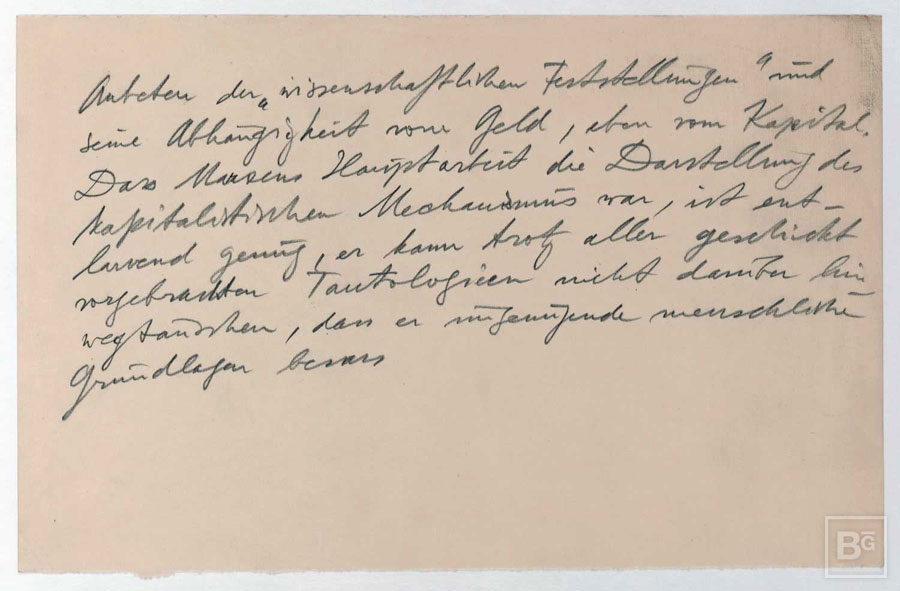 Anbeten der „wissenschaftlichen Feststellungen" und
seine Abhängigkeit vom Geld, eben vom Kapital.
Dass Marxens Hauptarbeit die Darstellung des
kapitalistischen Mechanismus war, ist ent-
larvend genug, er kann trotz aller geschickt
vorgebrachten Tautologieen nicht darüber hin
wegtäuschen, dass er ungenügende menschliche
Grundlagen besass
BG